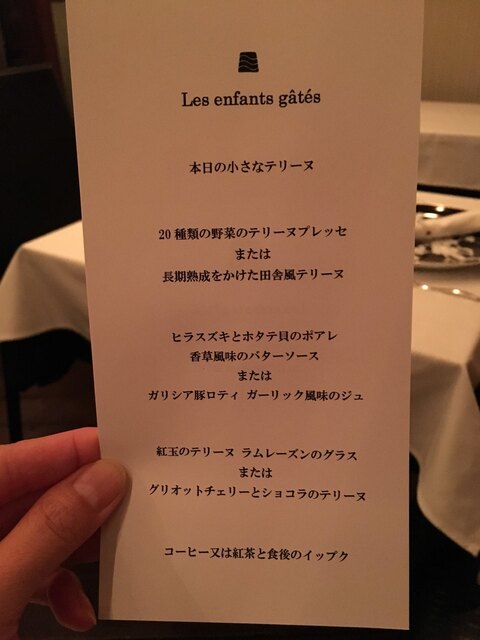 Les enfants gâtés
本日の小さなテリーヌ
20 種類の野菜のテリーヌプレッセ
または
長期熟成をかけた田舎風テリーヌ
ヒラスズキとホタテ貝のポアレ
香草風味のバターソース
または
ガリシア豚ロティ ガーリック風味のジュ
紅玉のテリーヌ ラムレーズンのグラス
または
グリオットチェリーとショコラのテリーヌ
コーヒー又は紅茶と食後のイップク